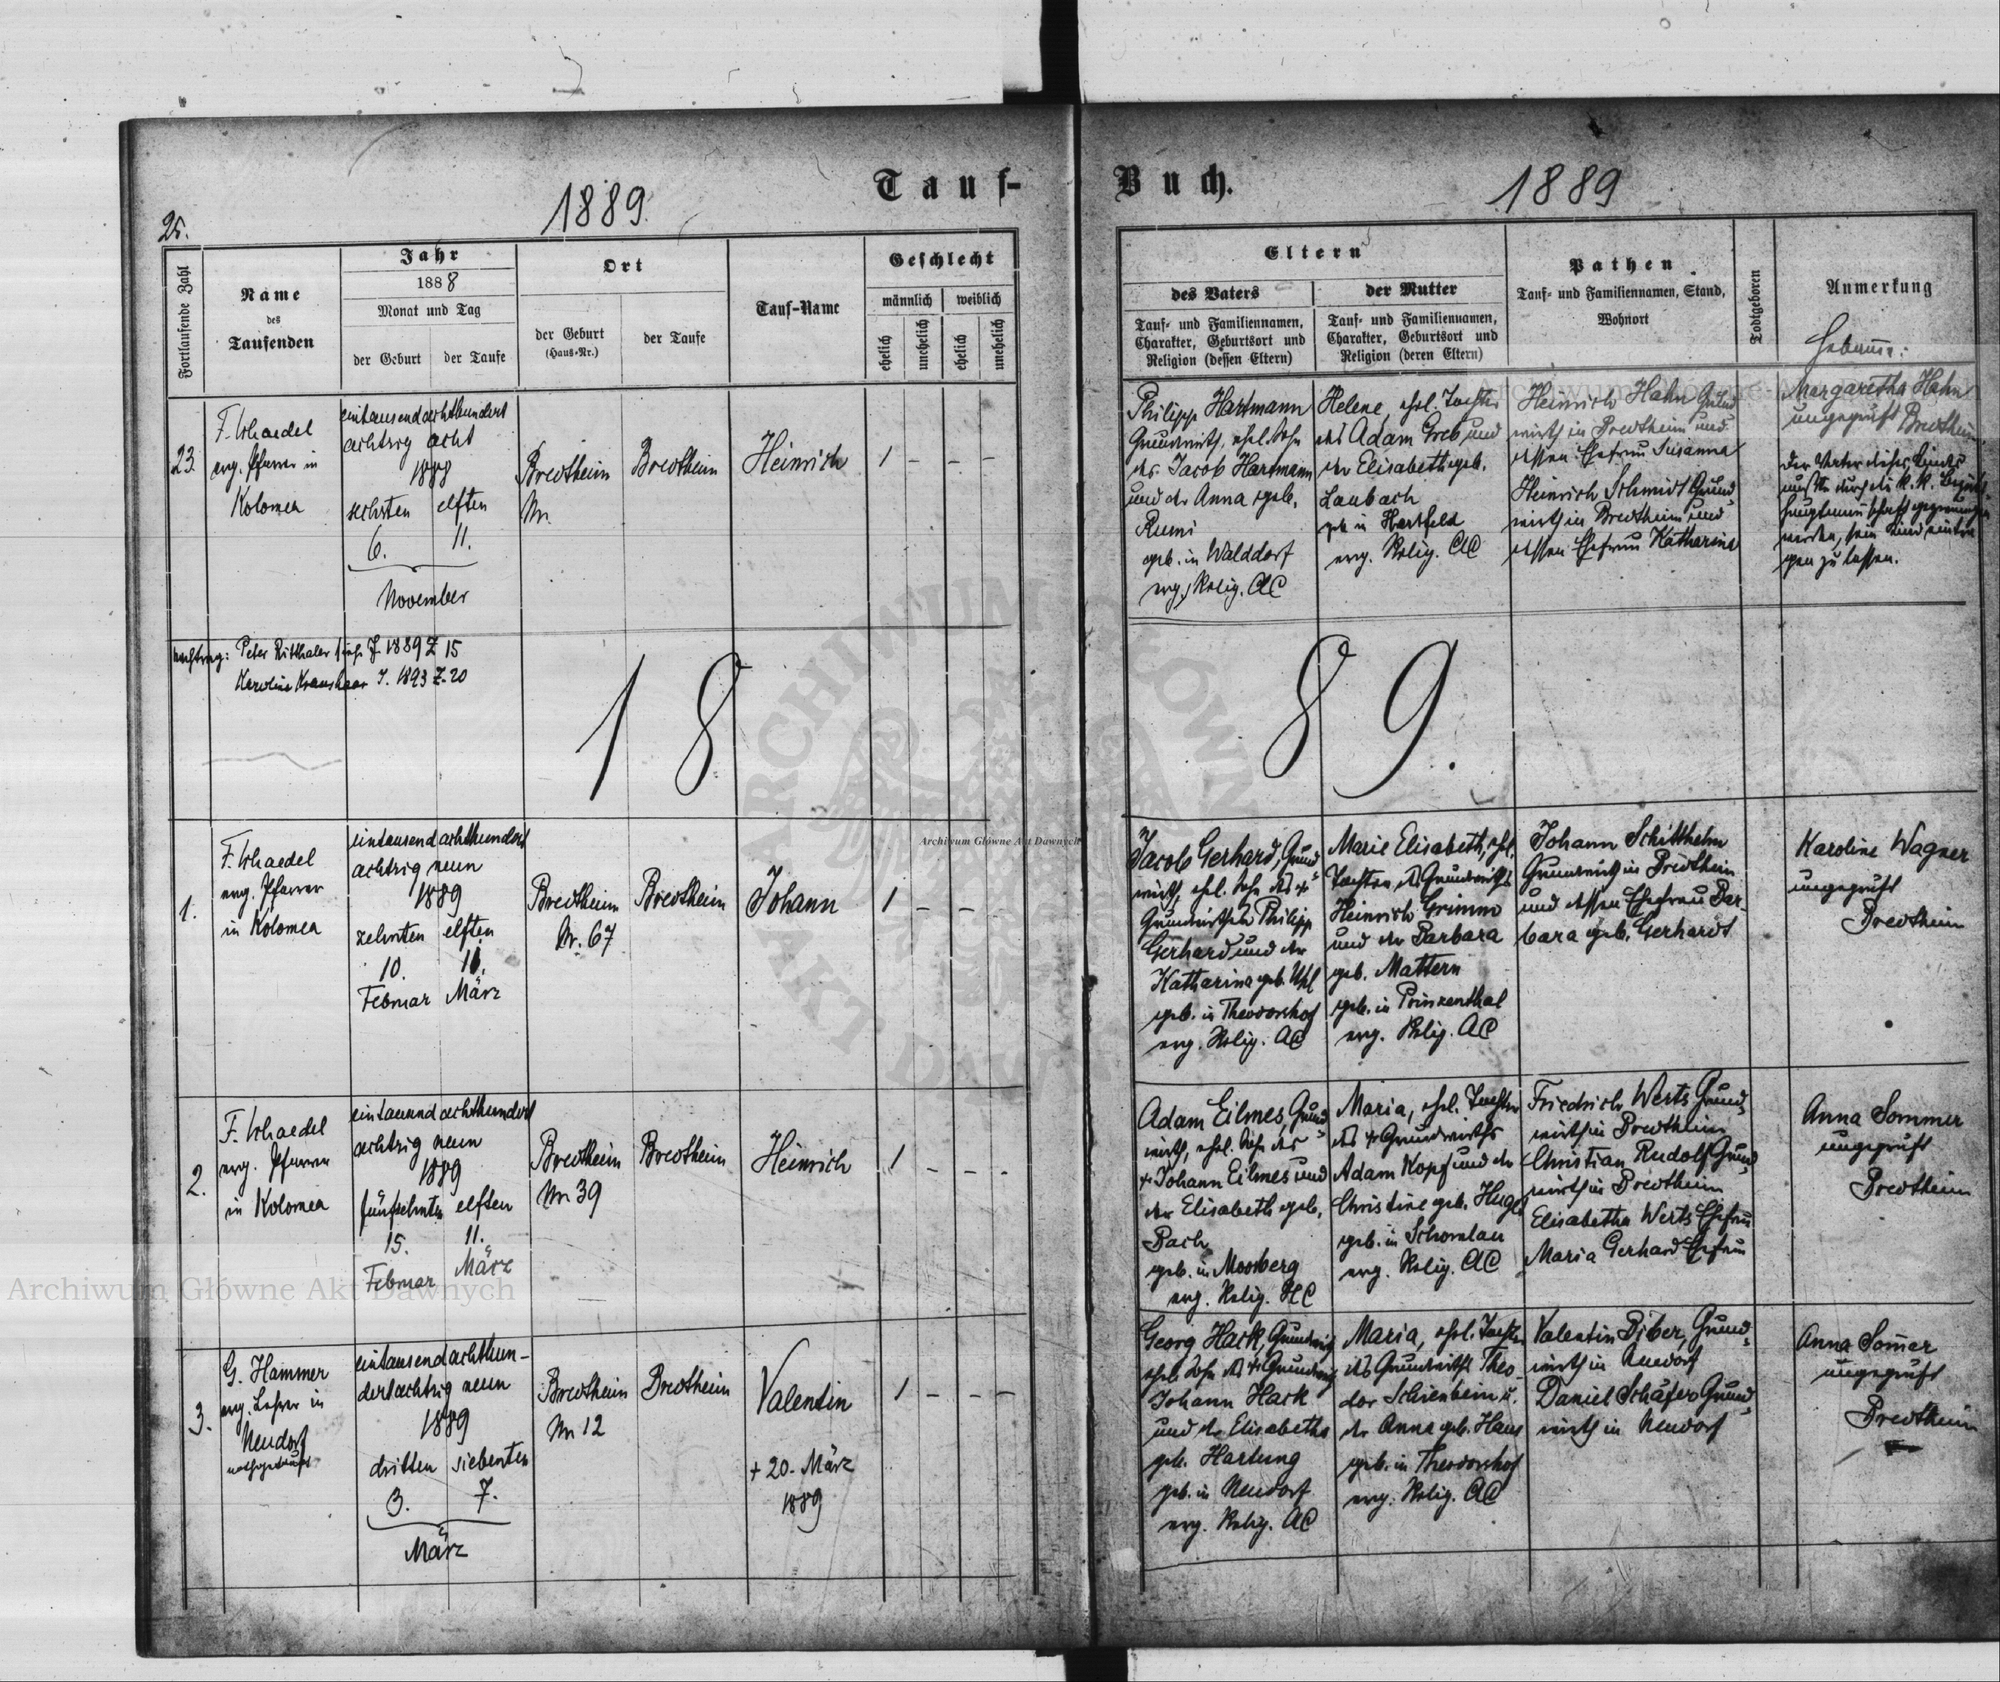 Tauf-
Buch.
25.
1889.
1889
Fortlaufende Zahl
Name
des
Taufenden
Jahr
1888
Monat und Tag
der Geburt
der Taufe
Ort
der Geburt
(Haus-Nr.)
der Taufe
Tauf-Name
Geschlecht
männlich
weiblich
ehelich
unehelich
ehelich
unehelich
Eltern
des Vaters
Tauf- und Familiennamen,
Charakter, Geburtsort und
Religion (dessen Eltern)
der Mutter
Tauf- und Familiennamen,
Charakter, Geburtsort und
Religion (deren Eltern)
Pathen
Tauf- und Familiennamen, Stand,
Wohnort
Todtgeboren
Anmerkung
Hebamme:
23.
evg. Pfarrer in
Kolomea
eintausendachthundert
achtzig acht
1888
sechsten elften
6. 11.
November
Bredtheim
Nr.
Bredtheim
Heinrich
1 - - -
Philipp Hartmann
Grundwirth, ehel. Sohn
des Jacob Hartmann
und der Anna geb.
geb. in Walddorf
evg. Relig. AC
Helene, ehel. Tochter
des Adam Greb und
der Elisabeth geb.
Laubach
geb. in Hartfeld
evg. Relig. AC
Heinrich Hahn Grund
wirth in Bredtheim und
dessen Ehefrau Susanna
Heinrich Schmidt Grund
wirth in Bredtheim und
dessen Ehefrau Katharina
Margaretha Hahn
ungeprüft Bredtheim
Der Vater dieses Kindes
mußte durch die k. k. Bezirks
hauptmannschaft gezwungen
werden, sein Kind eintra
gen zu lassen.
Nachtrag: Peter Ritthaler siehe J. 1889 Z 15
Karoline Kranshaar J. 1893 Z. 20
18
89.
1.
evg. Pfarrer
in Kolomea
eintausendachthundert
achtzig neun
1889
zehnten elften
10. 11.
Februar März
Bredtheim
Nr. 67
Bredtheim
Johann
1 - - -
Jacob Gerhard, Grund
wirth, ehel. Sohn des +
Grundwirthes Philipp
Gerhard und der
Katharina geb. Uhl
geb. in Theodorshof
evg. Relig. AC
Marie Elisabeth, ehel.
Tochter des Grundwirths
Heinrich Grimm
und der Barbara
geb. Mattern
geb. in Prinzenthal
evg. Relig. AC
Johann Schitthelm
Grundwirth in Bredtheim
und dessen Ehefrau Bar-
bara geb. Gerhardt
Karoline Wagner
ungeprüft
Bredtheim
2.
evg. Pfarrer
in Kolomea
eintausendachthundert
achtzig neun
1889
fünfzehnten elften
15. 11.
Februar März
Bredtheim
Nr. 39
Bredtheim
Heinrich
1 - - -
Adam Eilmes, Grund
wirth, ehel. Sohn des
+ Johann Eilmes und
der Elisabeth geb.
Bach
geb. in Moosberg
evg. Relig. HC
Maria, ehel. Tochter
des + Grundwirths
Adam Kopf und der
Christine geb. Hugel
geb. in
evg. Relig. AC
Friedrich Werts Grund
wirth in Bredtheim
Christian Rudolf Grund
wirth in Bredtheim
Elisabetha Werts Ehefrau
Maria Gerhard Ehefrau
Anna Sommer
ungeprüft
Bredtheim
3.
G. Hammer
evg. Lehrer in
Neudorf
nothgetauft
eintausendachthun-
dertachtzig neun
1889
dritten siebenten
3. 7.
März
Bredtheim
Nr. 12
Bredtheim
Valentin
+ 20. März
1889
1 - - -
Georg Hack, Grundwirth
ehel. Sohn des + Grundwirth
Johann Hack
und der Elisabetha
geb. Hartung
geb. in Neudorf
evg. Relig. AC
Maria, ehel. Tochter
des Grundwirths Theo-
dor Schienbein u.
der Anna geb. Haus
geb. in Theodorshof
evg. Relig. AC
Valentin Biber, Grund-
wirth in Neudorf
Daniel Schäfer Grund-
wirth in Neudorf
Anna Somer
ungeprüft
Bredtheim
Archiwum Główne Akt Dawnych
Archiwum Główne Akt Dawnych